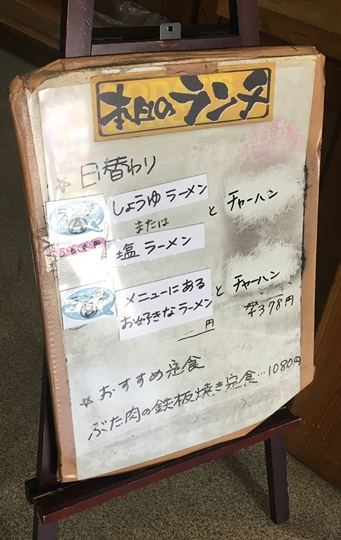 本日のランチ
☆日替わり
しょうゆラーメン
または
塩ラーメン
と チャーハン
メニューにある
お好きなラーメン
と チャーハン
円
378円
☆おすすめ定食
ぶた肉の鉄板焼き定食…1080円